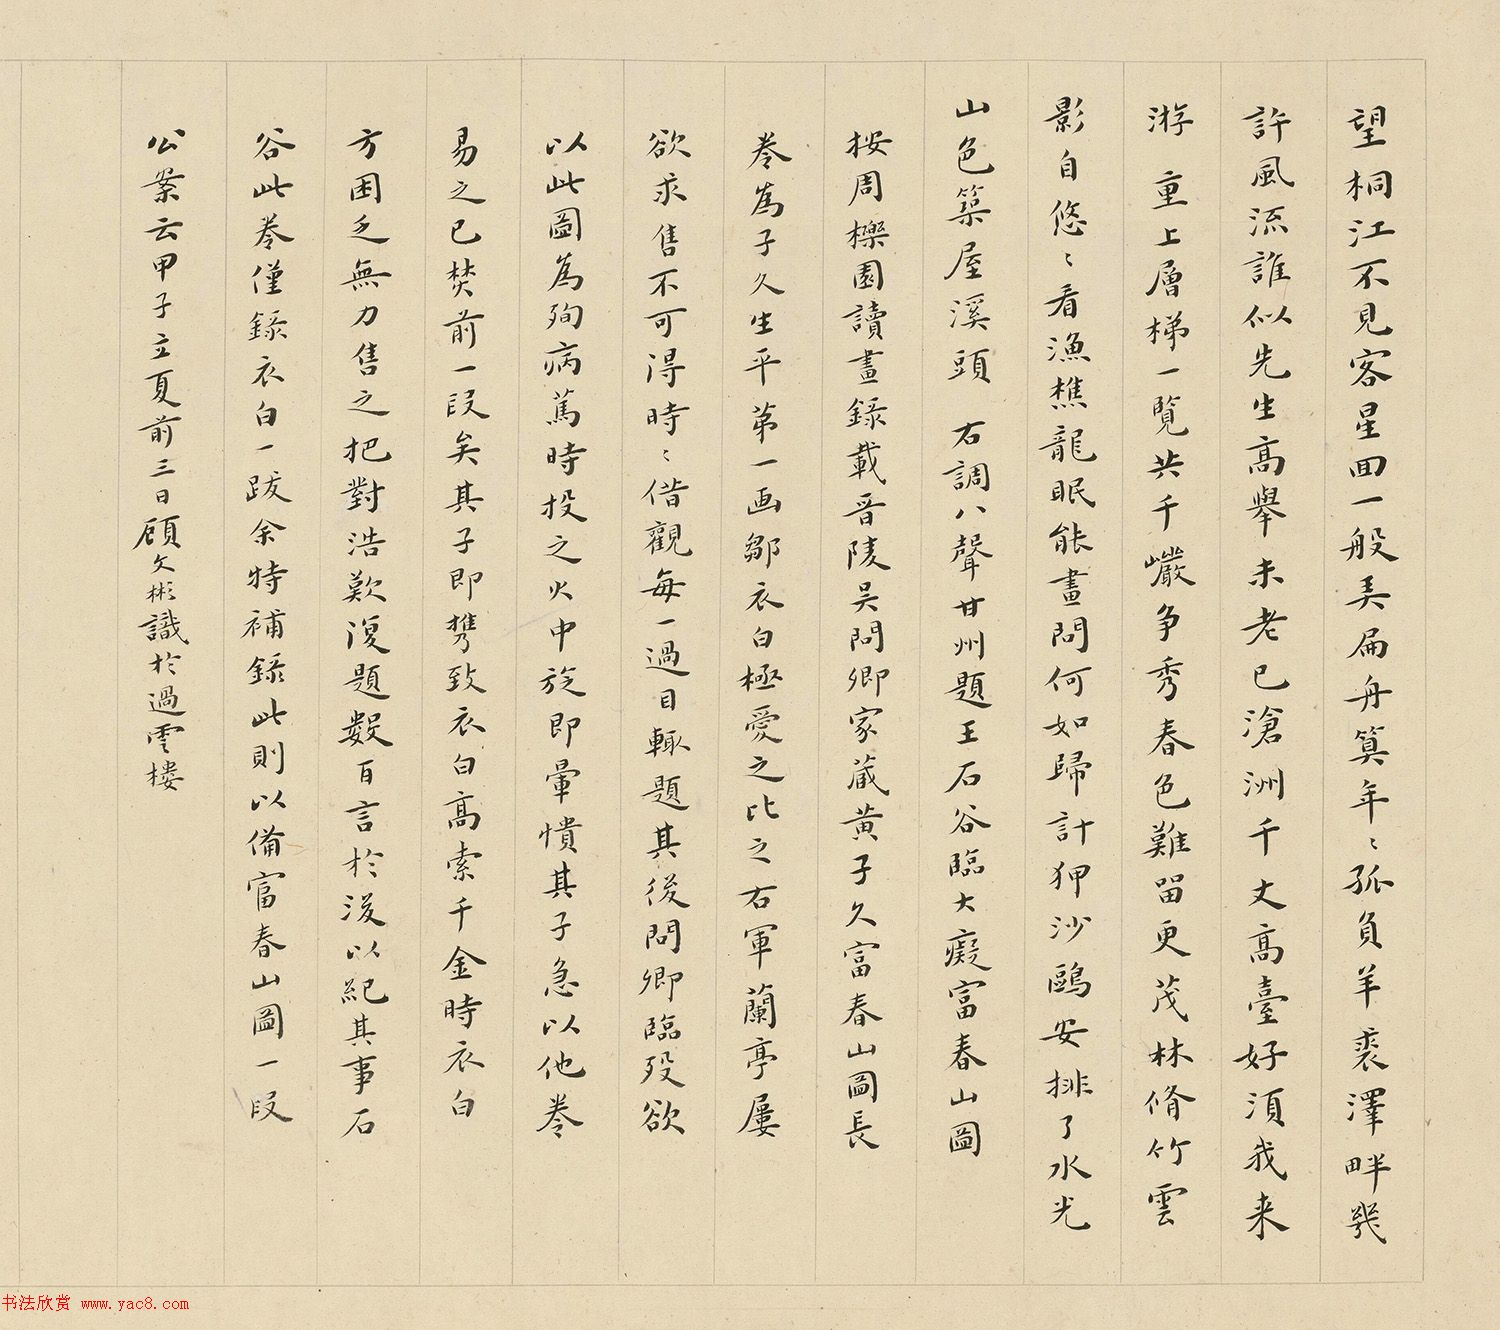 望桐江不見客星回一般弄扁舟算年〻孤負羊裘澤畔幾
許風流誰似先生高舉未老已滄洲千丈高臺好須我来
游 重上層梯一覽共千巖争秀春色難留更茂林脩竹雲
影自悠〻看漁樵龍眠能畫問何如歸計狎沙鷗安排了水光
山色築屋溪頭 右調八聲甘州題王石谷臨大癡富春山圖
按周櫟園讀畫錄載晋陵吴問卿家蔵黄子久富春山圖長
卷為子久生平苐一画鄒衣白極愛之比之右軍蘭亭屢
欲求售不可得時〻借觀每一過目輙題其後問卿臨殁欲
以此圖為殉病篤時投之火中旋即暈憒其子急以他卷
易之已焚前一段矣其子即携致衣白高索千金時衣白
方困乏無力售之把對浩歎復題數百言於後以紀其事石
谷此卷僅錄衣白一跋余特補錄此則以備富春山圖一段
公案云甲子立夏前三日顧文彬識於過雲樓
书法欣赏 www.yac8.com